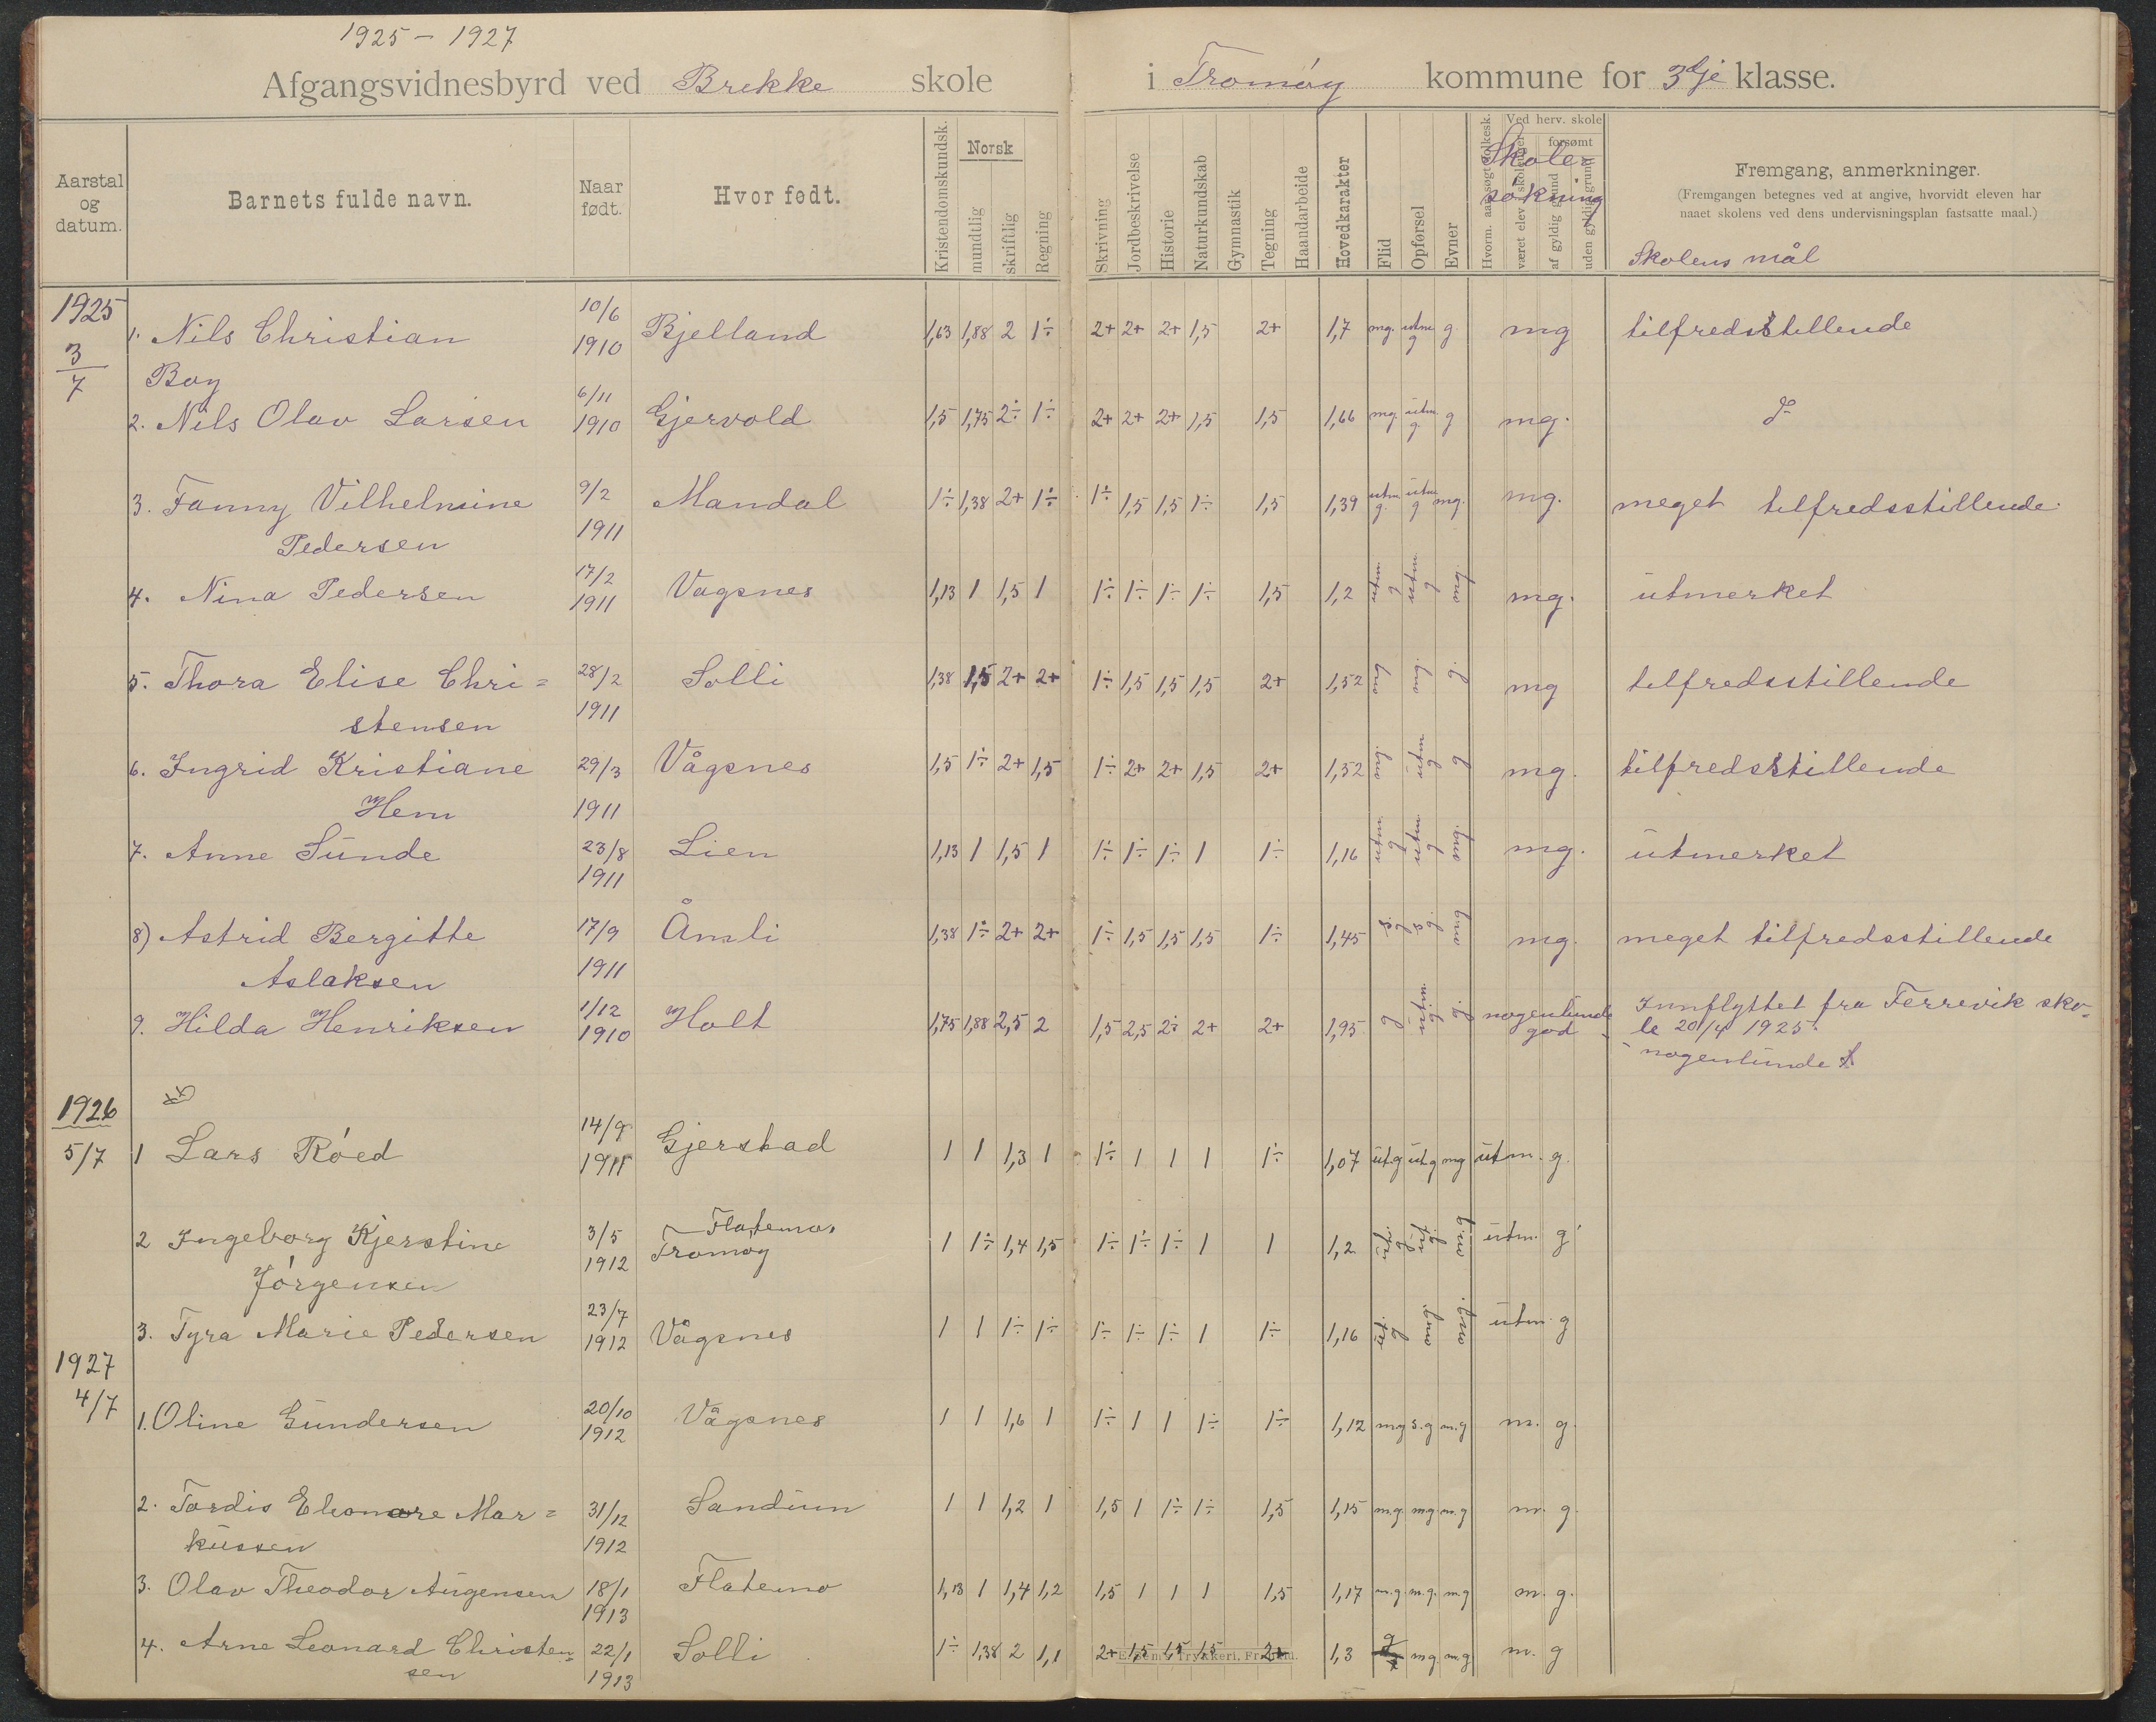 1925 - 1927
Afgangsvidnesbyrd ved Brekke skole i Tromøy kommune for 3dje klasse.
Aarstal og datum.
Barnets fulde navn.
Naar født.
Hvor født.
Kristendomskundsk.
Norsk
mundtlig
skriftlig
Regning
Skrivning
Jordbeskrivelse
Historie
Naturkundskab
Gymnastik
Tegning
Haandarbeide
Hovedkarakter
Flid
Opførsel
Evner
Ved herv. skole
forsømt
af gyldig grund
uden gyldig grund
Skolesøkning
Fremgang, anmerkninger.
(Fremgangen betegnes ved at angive, hvorvidt eleven har
naaet skolens ved dens undervisningsplan fastsatte maal.)
Skolens mål
1925 3/7
1. Nils Christian 10/6 1910 Bjelland 1,63 1,88 2 1÷ 2+ 2+ 2+ 1,5 2+ 1,7 mg. utm. g g. mg tilfredsstillende
Boy
2. Nils Olav Larsen 6/11 1910 Gjervold 1,5 1,75 2÷ 1÷ 2+ 2+ 2+ 1,5 1,5 1,66 mg. utm. g. g mg.
3. Fanny Vilhelmine 9/2 1911 Mandal 1÷ 1,38 2+ 1÷ 1÷ 1,5 1,5 1÷ 1,5 1,39 utm. g. utm g mg. mg. meget tilfredsstillende.
Pedersen
4. Nina Pedersen 17/2 1911 Vagsnes 1,13 1 1,5 1 1÷ 1÷ 1÷ 1÷ 1,5 1,2 utm. g utm g mg. mg. utmerket
5. Thora Elise Chri= 28/2 1911 Solli 1,38 1,5 2+ 2+ 1÷ 1,5 1,5 1,5 2+ 1,52 mg mg. g. mg tilfredsstillende
stensen
6. Ingrid Kristiane 29/3 1911 Vågsnes 1,5 1÷ 2+ 1,5 1÷ 2+ 2+ 1,5 2+ 1,52 mg. utm g g mg. tilfredsstillende
Hem
7. Anne Sunde 23/8 1911 Lien 1,13 1 1,5 1 1÷ 1÷ 1÷ 1 1÷ 1,16 utm. g utm g mg. mg. utmerket
8) Astrid Bergitte 17/9 1911 Åmli 1,38 1÷ 2+ 2+ 1÷ 1,5 1,5 1,5 1÷ 1,45 s. g s g. mg mg. meget tilfredsstillende
Aslaksen
9. Hilda Henriksen 1/12 1910 Holt 1,75 1,88 2,5 2 1,5 2,5 2÷ 2+ 2+ 1,95 g utm. g. g. nogenlunde god Innflyttet fra Ferrevik sko-
le 20/4 1925.
nogenlunde
1926 5/7
1 Lars Røed 14/9 1911 Gjerstad 1 1 1,3 1 1÷ 1 1 1 1÷ 1,07 utg utg mg utm. g.
2 Ingeborg Kjerstine 3/5 1912 Flatemo, Tromøy 1 1÷ 1,4 1,5 1÷ 1÷ 1÷ 1 1 1,2 ut. g ut. g m.g utm. g
Jørgensen
3. Tyra Marie Pedersen 23/7 1912 Vågsnes 1 1 1÷ 1÷ 1÷ 1÷ 1÷ 1 1÷ 1,16 ut. g mg. mg. utm. g
1927 4/7
1. Oline Gundersen 20/10 1912 Vågsnes 1 1 1,6 1 1÷ 1 1 1÷ 1÷ 1,12 mg s.g m.g m. g.
2. Tordis Eleonore Mar= 31/12 1912 Sandum 1 1 1,2 1 1,5 1 1÷ 1÷ 1,5 1,15 m.g. mg m.g m. g.
kussen
3. Olav Theodor Augensen 18/1 1913 Flatemo 1,13 1 1,4 1,2 1,5 1 1 1 1,5 1,17 m.g. m.g. m.g m. g.
4. Arne Leonard Christen= 22/1 1913 Solli 1÷ 1,38 2 1,1 2+ 1,5 1,5 1,5 2+ 1,3 g mg m.g m. g
sen